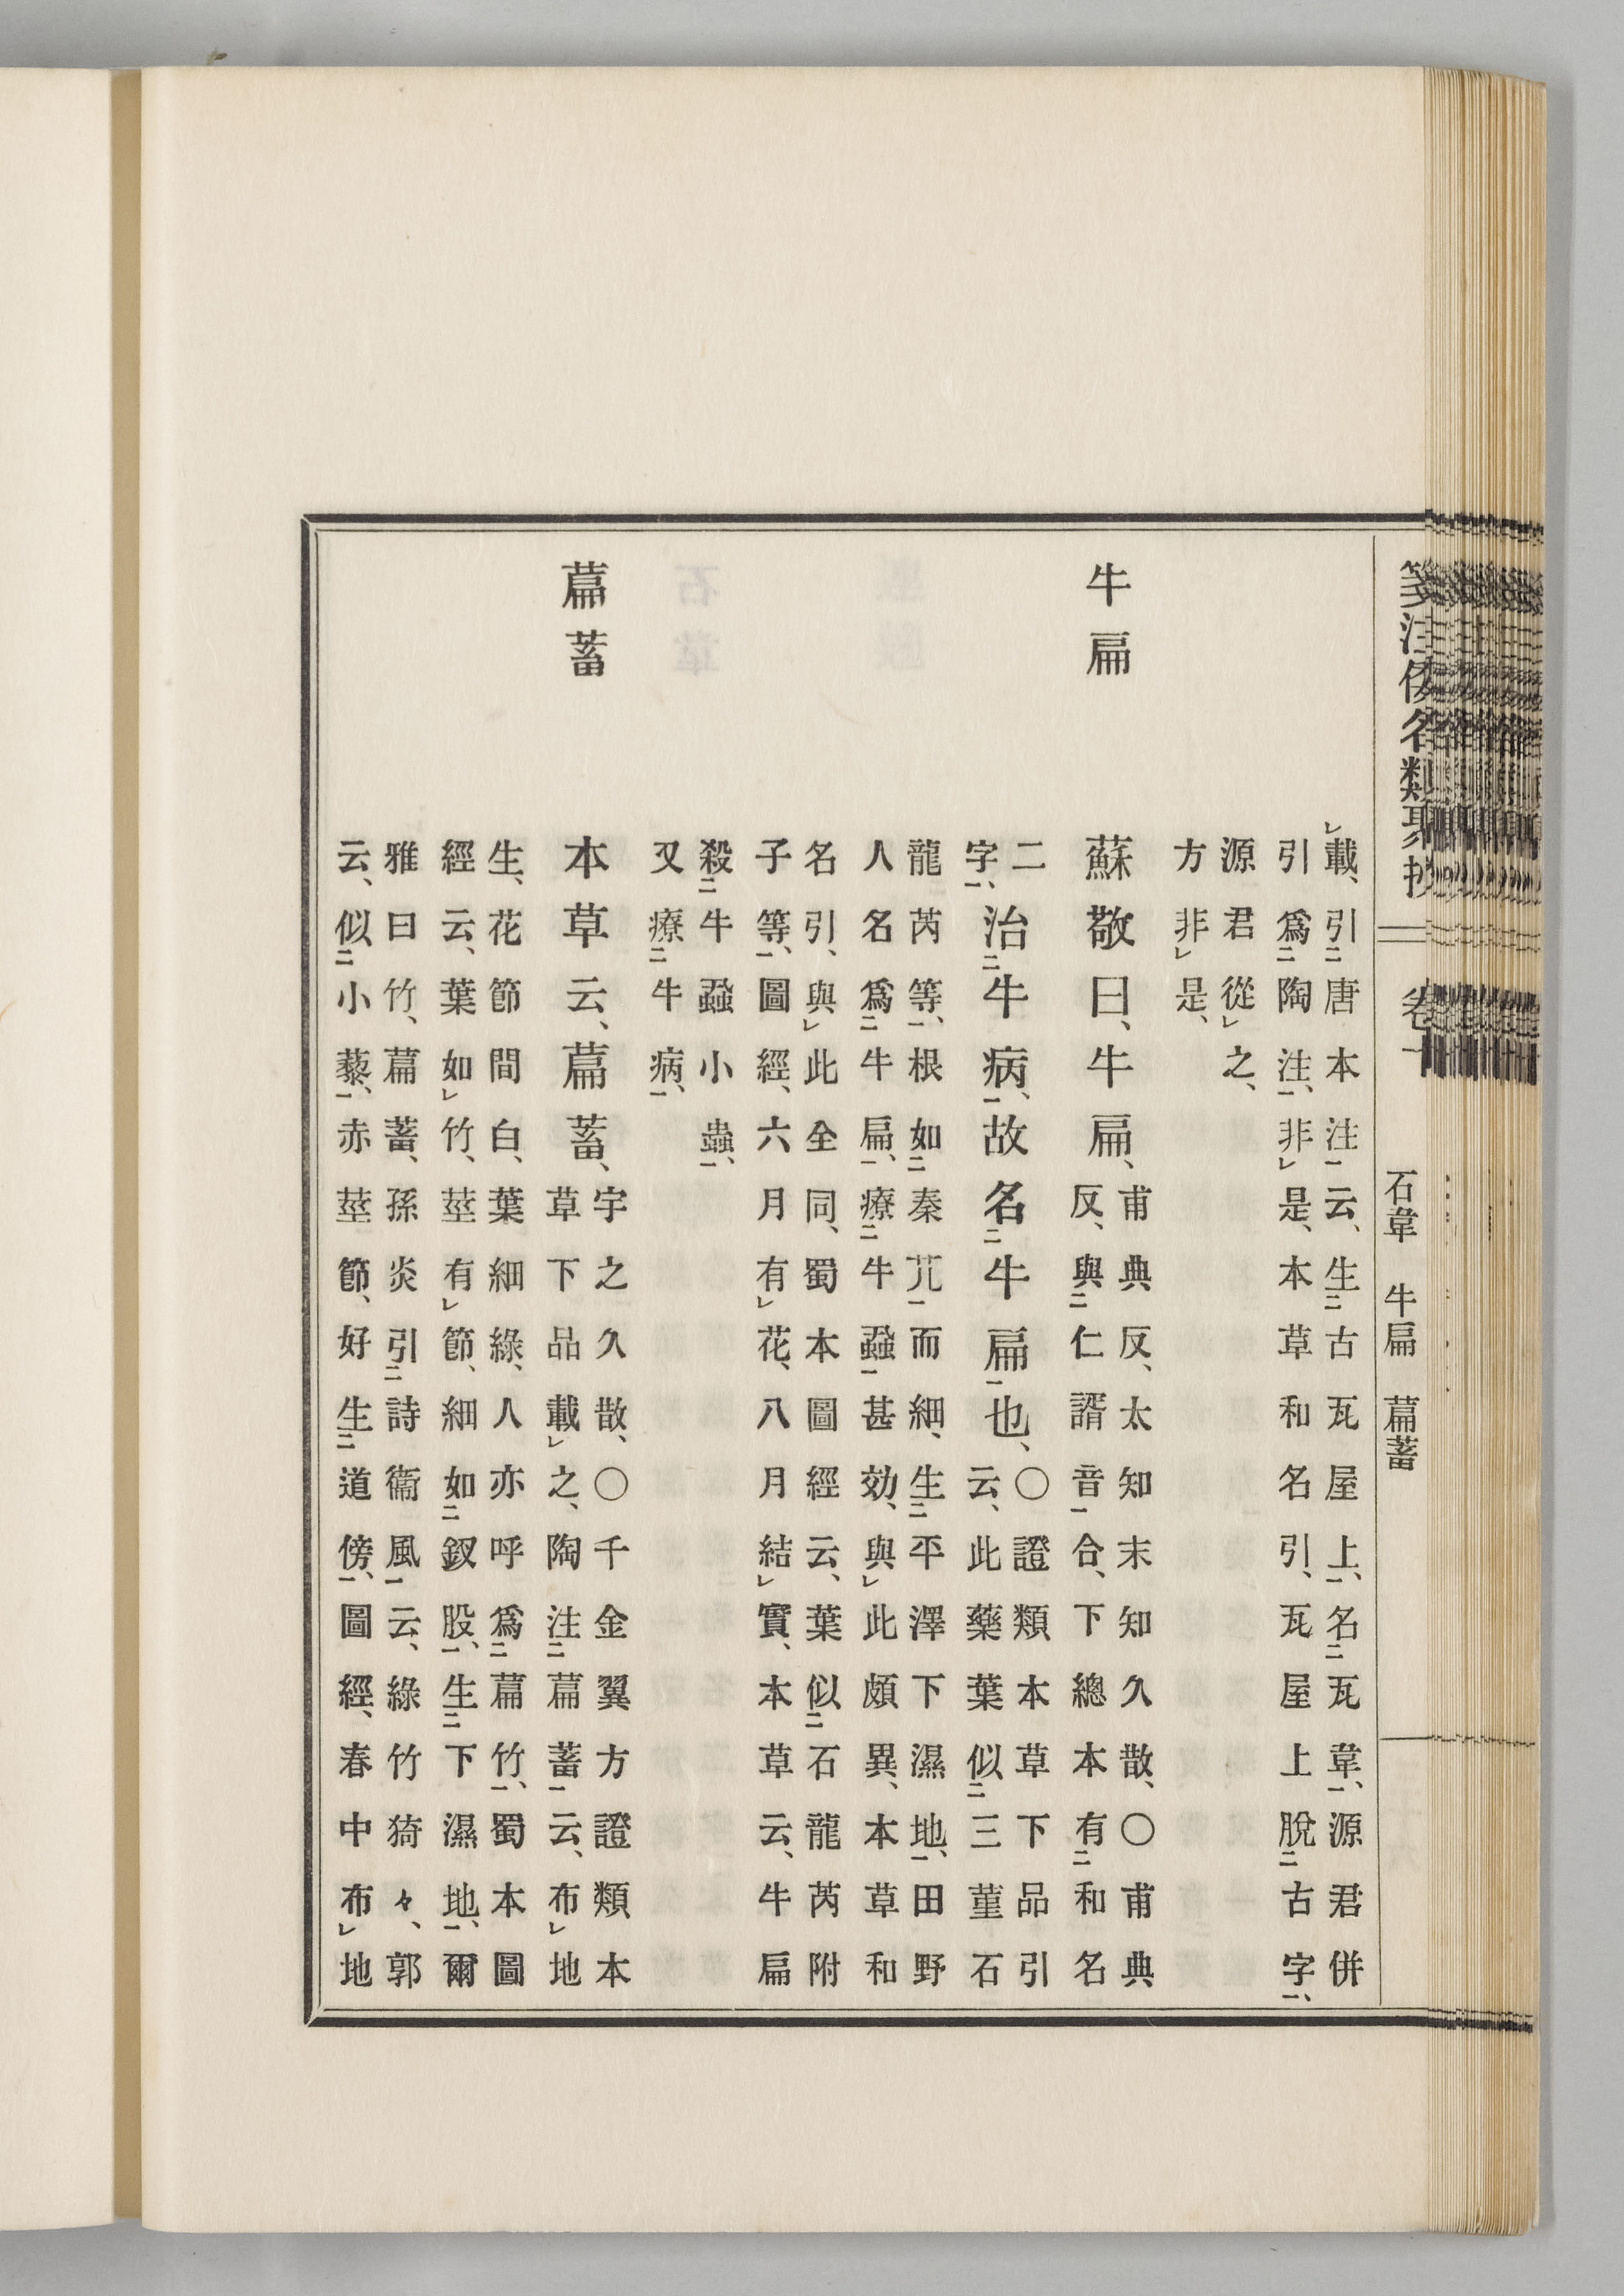 箋注倭名類聚抄 卷 石韋 牛扁 萹蓄
載、引唐本注云、生古瓦屋上、名瓦韋、源君併
引爲陶注、非是、本草和名引、瓦屋上脫古字、
源君從之、
方非是、
牛扁
蘇敬曰、牛扁、
甫典反、太知末知久散、○甫典
反、與仁諝音合、下總本有和名
二
字、
治牛病、故名牛扁也、
○證類本草下品引
云、此藥葉似三菫石
龍芮等、根如秦艽而細、生平澤下濕地、田野
人名爲牛扁、療牛蝨甚効、與此頗異、本草和
名引、與此全同、蜀本圖經云、葉似石龍芮附
子等、圖經、六月有花、八月結實、本草云、牛扁
殺牛蝨小蟲、
又療牛病、
萹蓄
本草云、萹蓄、
宇之久散、○千金翼方證類本
草下品載之、陶注萹蓄云、布地
生、花節間白、葉細綠、人亦呼爲萹竹、蜀本圖
經云、葉如竹、莖有節、細如釵股、生下濕地、爾
雅曰竹、萹蓄、孫炎引詩衞風云、綠竹猗々、郭
云、似小藜、赤莖節、好生道傍、圖經、春中布地